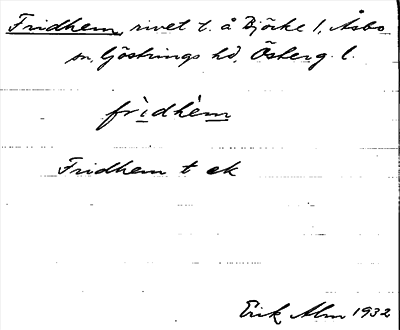 Fridhem, rivet t. å Djörke 1, Åsbo
sn, Göstrings hd, Österg. l.
frìdhèm
Fridhem t ek
Erik Alm 1932